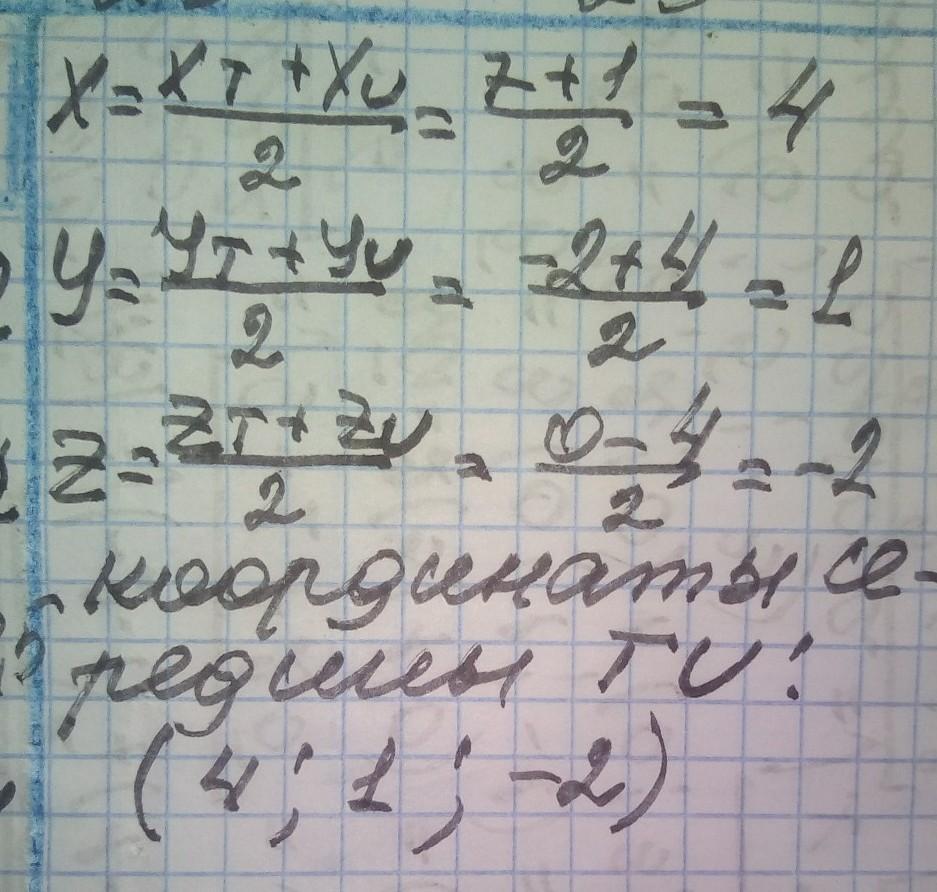 X = (X_T + X_U)/2 = (7 + 1)/2 = 4
Y = (Y_T + Y_U)/2 = (-2 + 4)/2 = 1
Z = (Z_T + Z_U)/2 = (0 - 4)/2 = -2
координаты се-
редины TU:
(4; 1; -2)